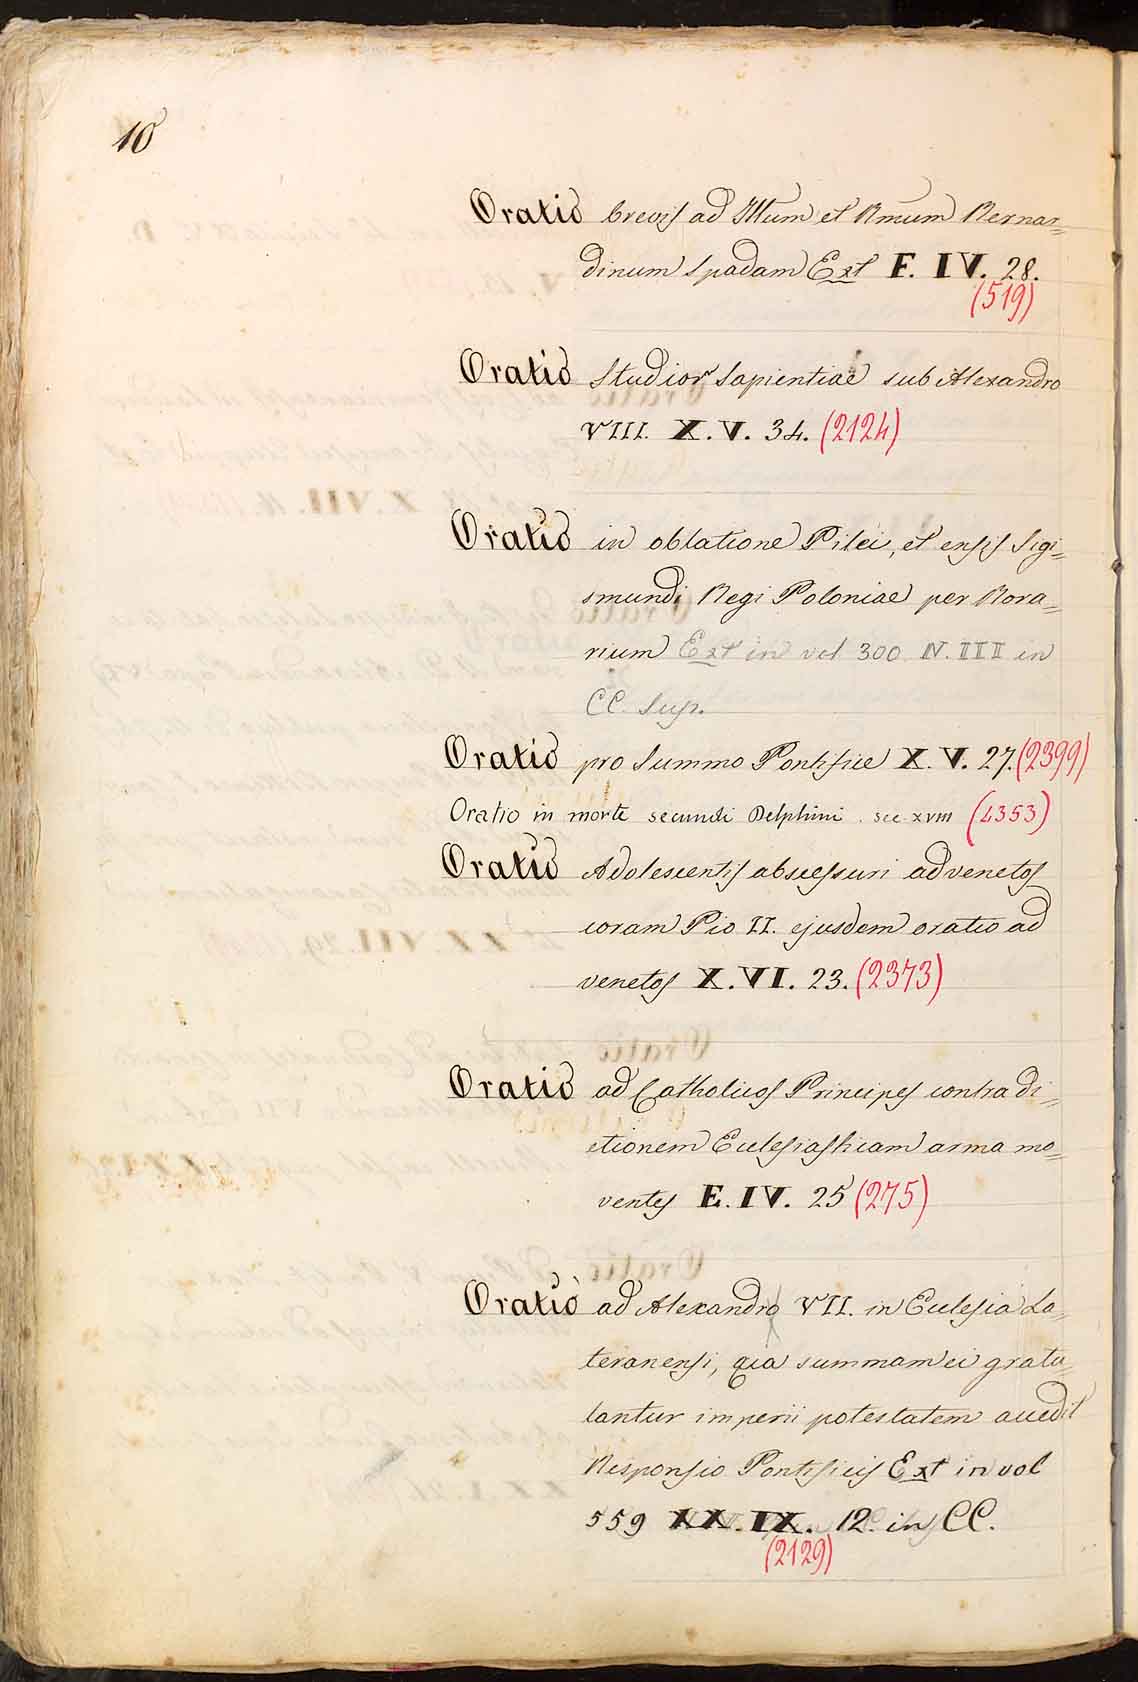 10
Oratio brevis ad Illum et Rmum Bernar=
dinum Spadam Ext F. IV. 28.
(519)
Oratio Studior Sapientiae sub Alexandro
VIII. X. V. 34. (2124)
Oratio in oblatione Pilei, et ensis Sigi=
smundi Regi Poloniae per Rora=
rium Ext in vol 300 N. III in
CC. Sup.
Oratio pro Summo Pontifice X. V. 27. (2399)
Oratio in morte secundi Delphini. sec. XVIII (4353)
Oratio Adolescentis abscessuri ad venetos
coram Pio II. ejusdem oratio ad
venetos X. VI. 23. (2373)
Oratio ad Catholicos Principes contra di=
ctionem Ecclesiasticam arma mo=
ventes E. IV. 25 (275)
Oratio ad Alexandro VII. in Ecclesia La=
teranensi, qua summam ei gratu=
lantur imperii potestatem accedit
Responsio Pontificis Ext in vol
559 XX. IX. 12. in CC.
(2129)